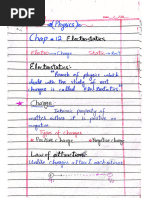 (Physics)
Chap # 12 Electrostatics
Electro → Charge Static → Rest
Electrostatics:-
"Branch of physics which
deals with the study of rest
charges is called "Electrostatics."
Charge:-
Intrinsic property of
matter, either it is positive or
negative.
Types of charges
Positive charge Negative charge
Law of attraction:-
Unlike charges attract each other